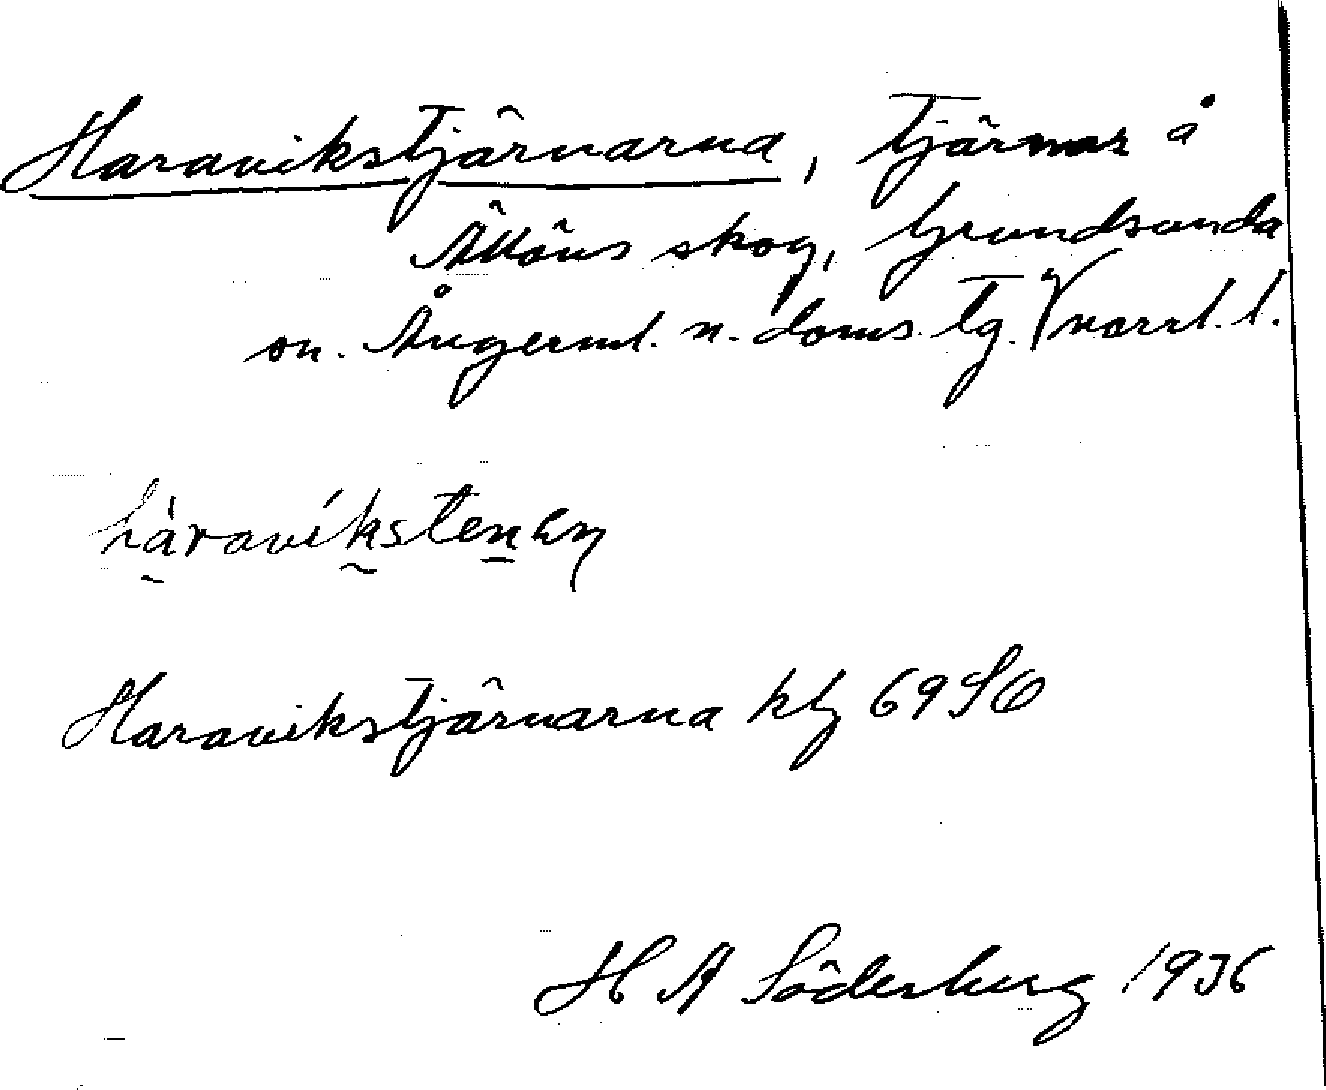 Haravikstjärnarna, tjärnar å
Ällöns skog, Grundsunda
sn. Ångerml. n. doms. tg. Vnorrl. l.
hàravíkstenɐn
Haravikstjärnarna kbl 69 SO
H A Söderberg 1936